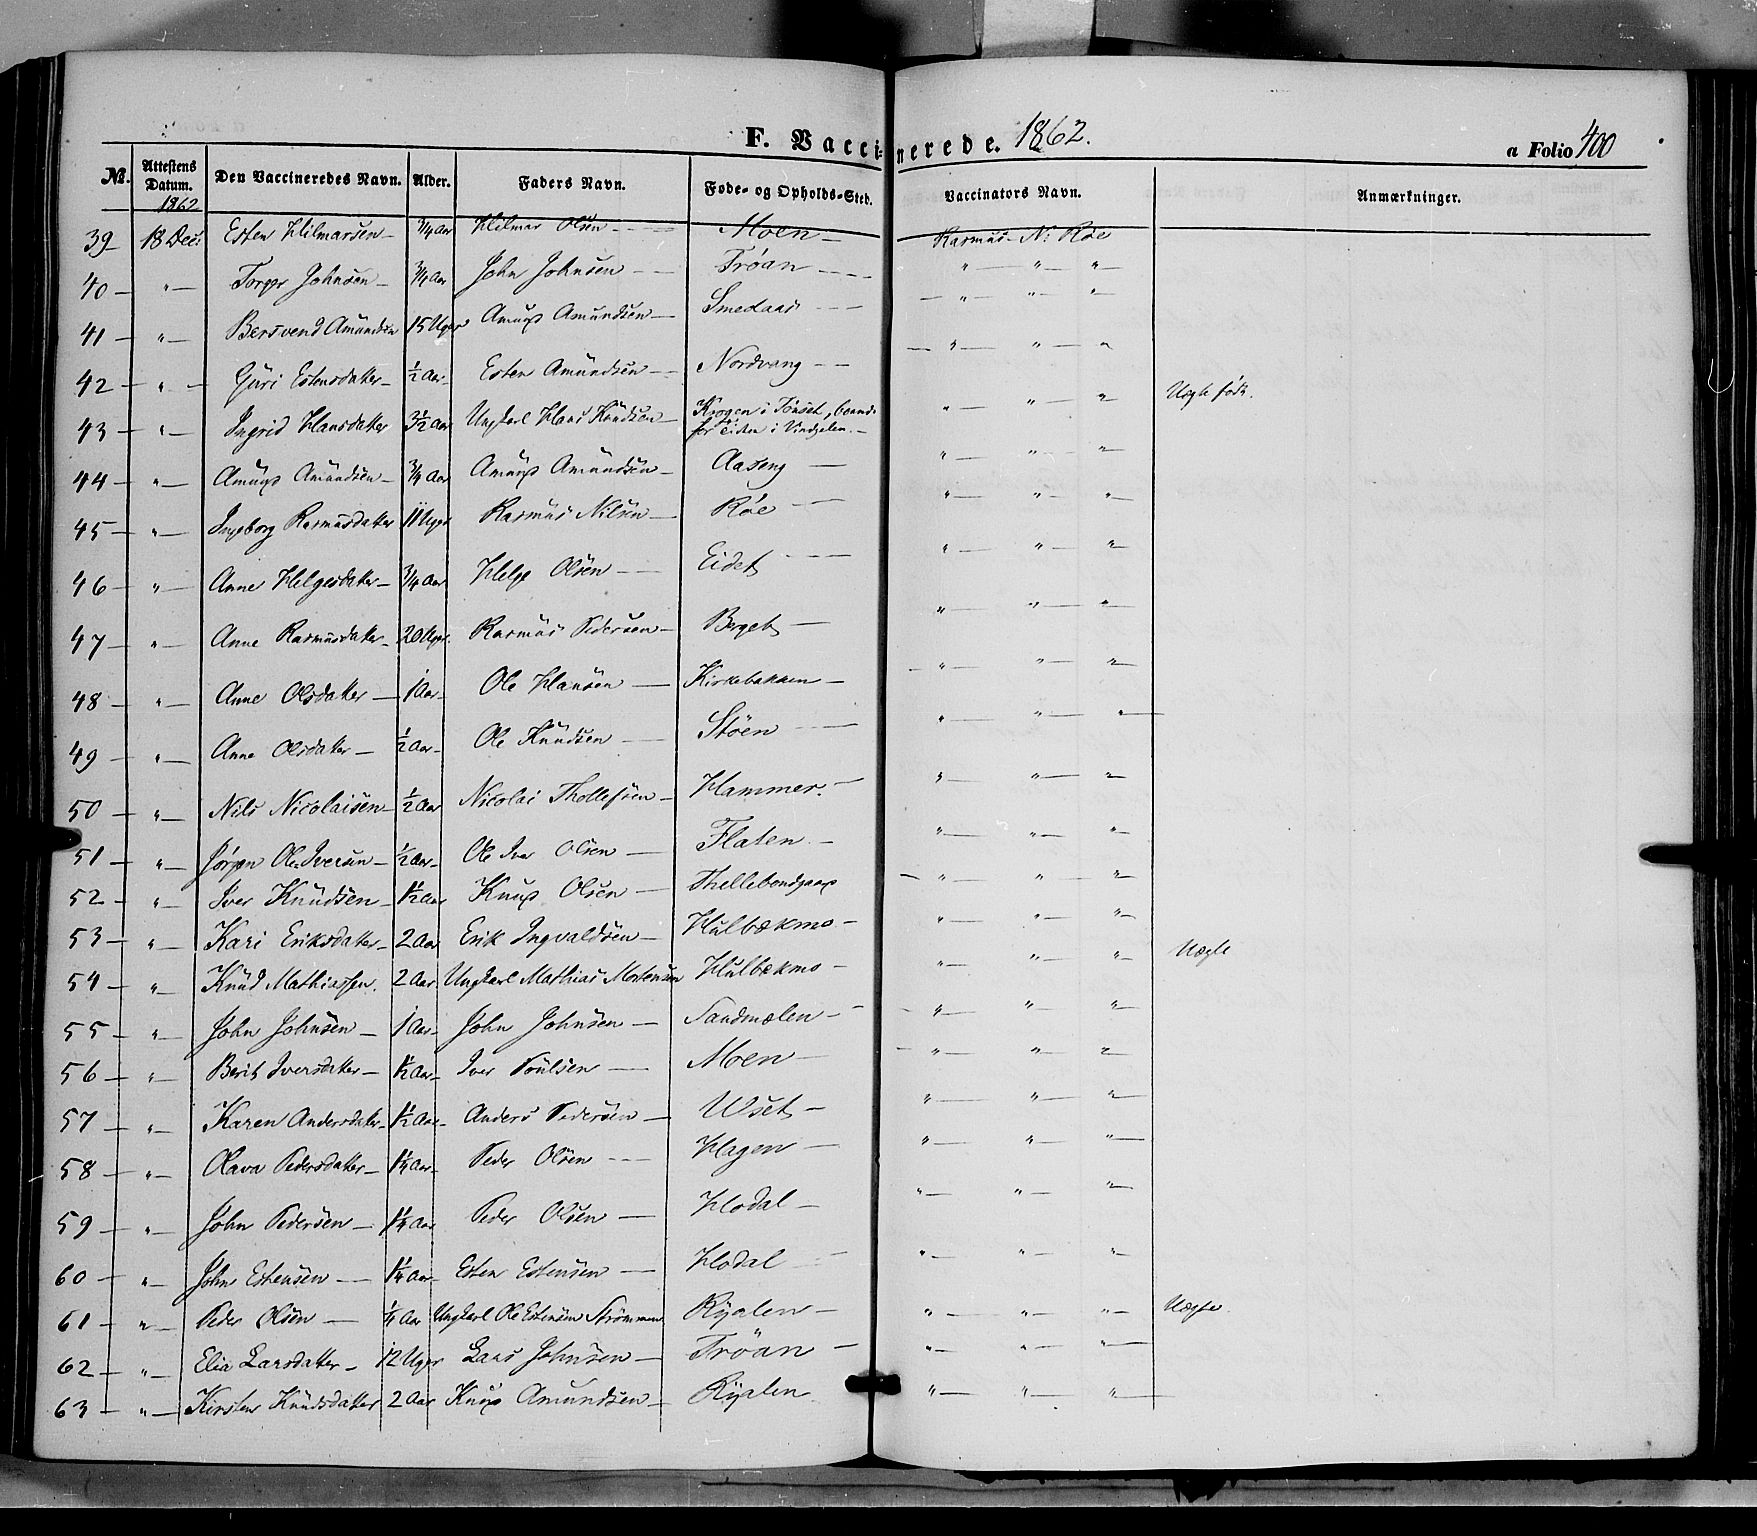 F. Vaccinerede. 1862.
a Folio 400
№. Attestens Datum. Den Vaccineredes Navn. Alder. Faders Navn. Føde- og Opholds-Sted. Vaccinators Navn. Anmærkninger.
1862
39 18 Decr Esten Hilmarsen - 3/4 Aar Hilmar Olsen - Moen - Rasmus N: Røe
40 - " - Torger Johnsen - 3/4 Aar John Johnsen - Trøan - " - " - "
41 - " - Bersvend Amundsen 15 Uger Amund Amundsen - Smedaas - " - " - "
42 - " - Guri Estensdatter - 1/2 Aar - Esten Amundsen - Nordvang - " - " - "
43 - " - Ingrid Hansdatter 3 1/2 Aar Ungkarl Hans Knudsen - Krogen i Tønset, boende " - " - " Uægte født.
for tiden i Vingelen. -
44 - " - Amund Amundsen - 3/4 Aar Amund Amundsen - Aaseng - " - " - "
45 - " - Ingeborg Rasmusdatter 11 Uger Rasmus Nilsen - Røe - " - " - "
46 - " - Anne Helgesdatter - 3/4 Aar Helge Olsen - Eidet - " - " - "
47 - " - Anne Rasmusdatter - 20 Uger. Rasmus Pedersen - Berget - " - " - "
48 - " - Anne Olsdatter - 1 Aar - Ole Hansen - Kirkebakken - " - " - "
49 - " - Anne Olsdatter - 1/2 Aar - Ole Knudsen - Støen - " - " - "
50 - " - Nils Nicolaisen - 1/2 Aar Nicolai Thollefsen - Hammer. - " - " - "
51 - " - Jørgen Ole Iversen - 1/2 Aar - Ole Iver Olsen - Flaten - " - " - "
52 - " - Iver Knudsen - 1 1/2 Aar Knud Olsen - Thellebondgaard " - " - "
53 - " - Kari Eriksdatter - 2 Aar Erik Ingvaldsen - Hulbækmo - " - " - "
54 - " - Knud Mathiassen. 2 Aar Ungkarl Mathias Mortensen Hulbækmo - " - " - " Uægte
55 - " - John Johnsen - 1 Aar - John Johnsen - Sandmælen - " - " - "
56 - " - Berit Iversdatter - 1 1/2 Aar - Iver Poulsen - Moen - " - " - "
57 - " - Karen Andersdatter - 1 1/2 Aar - Anders Pedersen - Uset - " - " - "
58 - " - Olava Pedersdatter - 1 1/4 Aar - Peder Olsen - Hagen - " - " - "
59 - " - John Pedersen - 1 1/4 Aar Peder Olsen - Hodal - " - " - "
60 - " - John Estensen - 1 1/4 Aar - Esten Estensen - Hodal - " - " - "
61 - " - Peder Olsen - 1/4 Aar Ungkarl Ole Estensen Strømmen Ryalen - " - " - " Uægte
62 - " - Elia Larsdatter - 12 Uger Lars Johnsen - Trøan - " - " - "
63 - " - Kirsten Knudsdatter 2 Aar Knud Amundsen - Ryalen " - " - "